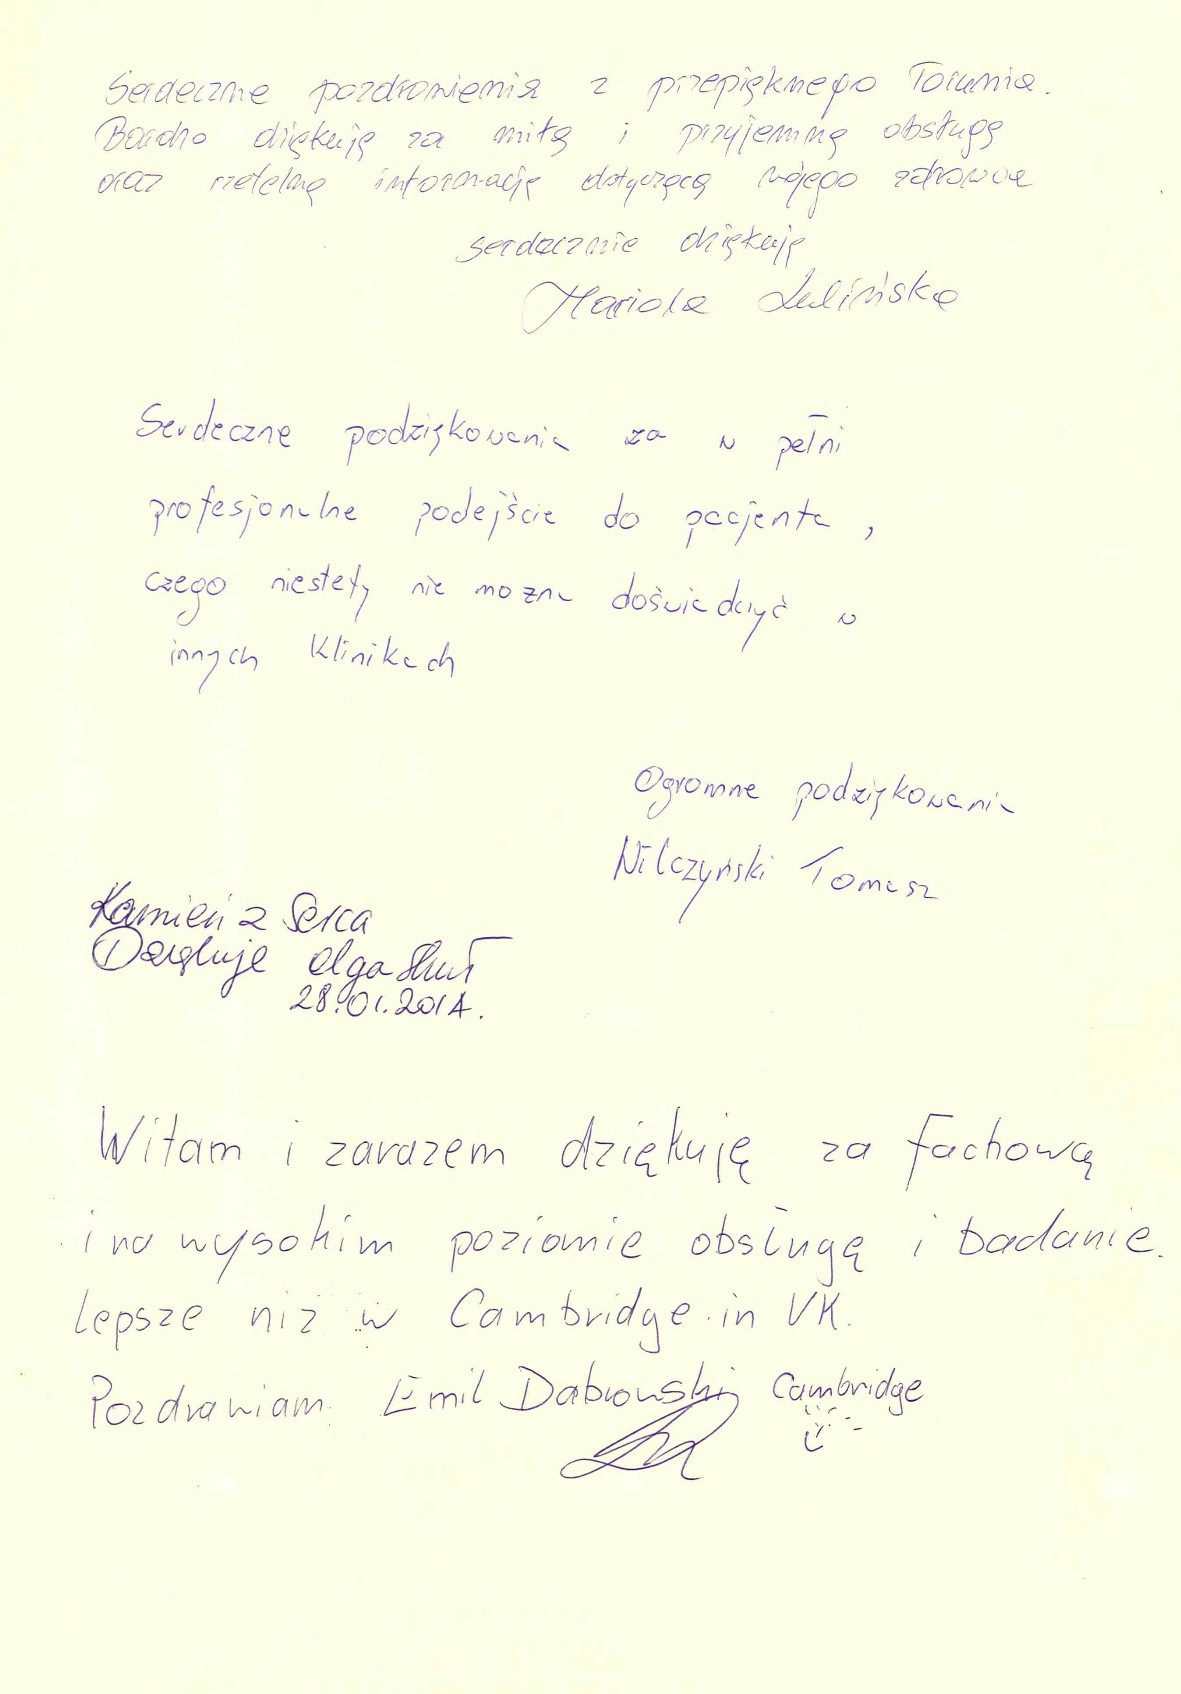 Serdeczne pozdrowienia z przepięknego Torunia.
Bardzo dziękuję za miłą i przyjemną obsługę
oraz rzetelną informację dotyczącą mojego zdrowia
serdecznie dziękuję
Mariola
Serdeczne podziękowania za w pełni
profesjonalne podejście do pacjenta,
czego niestety nie można doświadczyć w
innych klinikach
Ogromne podziękowania
Wilczyński Tomasz
Kamień z Serca
Dziękuję Olga
28.01.2014.
Witam i zarazem dziękuję za fachową
i na wysokim poziomie obsługę i badanie.
lepsze niż w Cambridge in UK.
Pozdrawiam Emil Dabrowski Cambridge